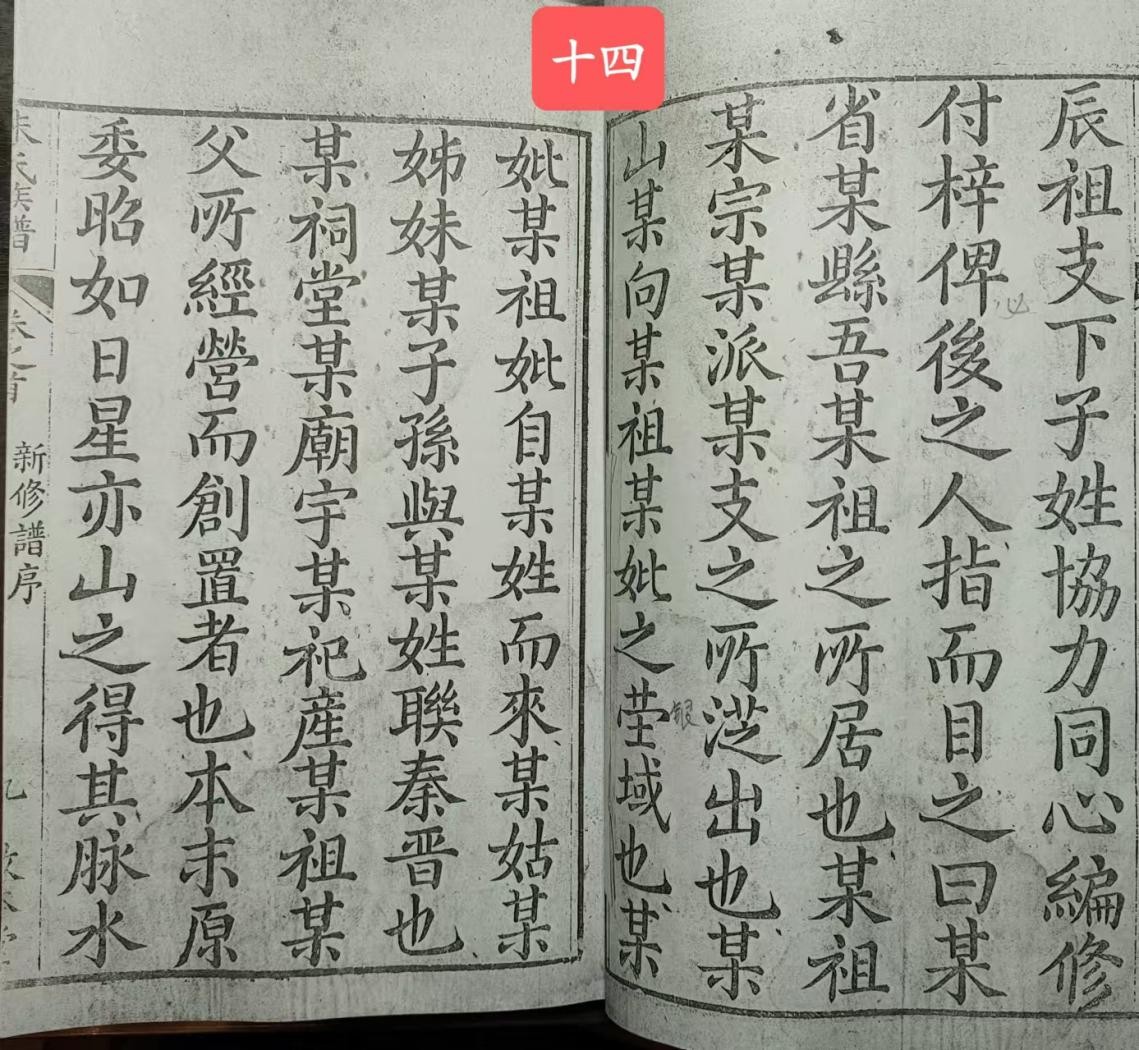 十四
辰祖支下子姓協力同心編修
付梓俾後之人指而目之曰某
省某縣吾某祖之所居也某祖
某宗某派某支之所涖出也某
山某向某祖某妣之塋域也某
妣某祖妣自某姓而來某姑某
姊妹某子孫與某姓聯秦晋也
某祠堂某廟宇某祀產某祖某
父所經營而創置者也本末原
委昭如日星亦山之得其脉水
朱氏族譜
卷之首
新修譜序
九